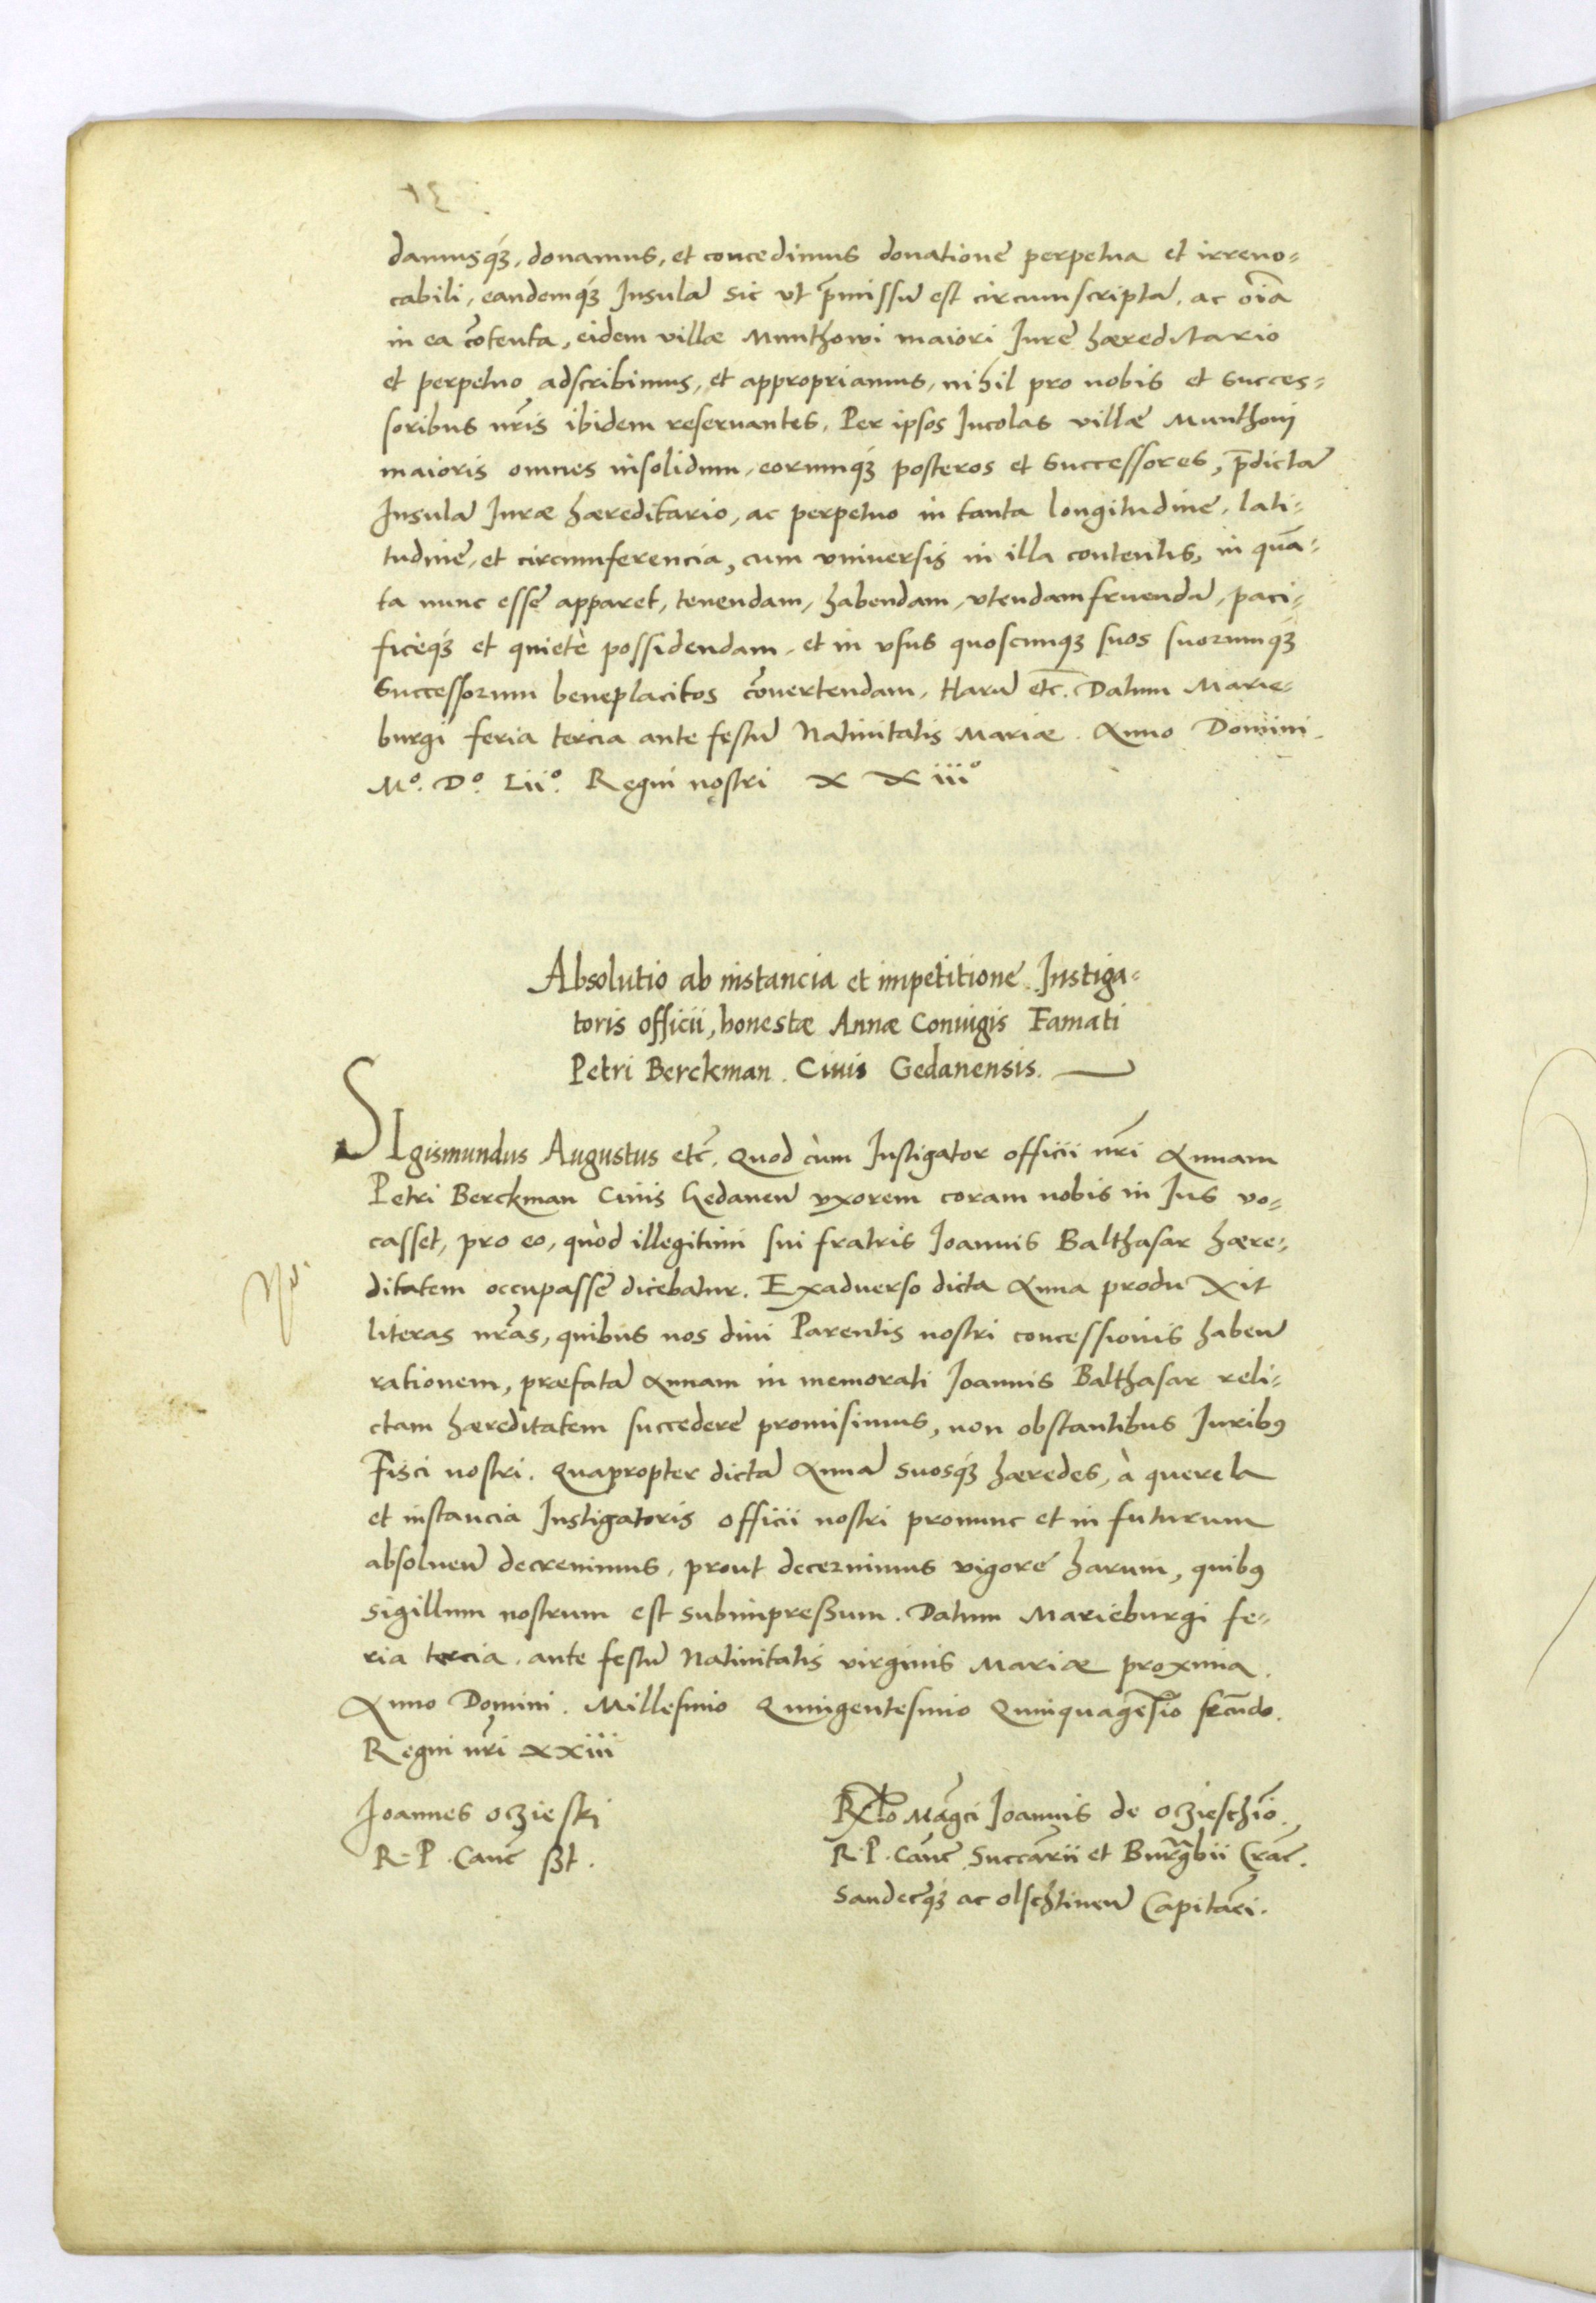 damusq́ꝫ, donamus, et concedimus donatione perpetua et irreuo=
cabili, eandemq́ꝫ Insulã sic vt p̃missũ est circumscriptã, ac oĩa
in ea cõtenta, eidem villæ Munthowi maiori Jure hæreditario
et perpetuo adscribimus, et appropriamus, nihil pro nobis et succes=
soribus nr̃is ibidem reseruantes, Per ipsos Incolas villæ Munthowj
maioris omnes insolidum, eorumq́ꝫ posteros et successores, p̃dictã
Insulã Juræ hæreditario, ac perpetuo in tanta longitudine, lati=
tudine, et circumferencia, cum vniuersis in illa contentis, in quã=
ta nunc esse apparet, tenendam, habendam, vtendam fruendã, paci=
ficèq́ꝫ et quietè possidendam, et in vsus quoscunqꝫ suos suorumq́ꝫ
Successorum beneplacitos cõuertendam. Harũ etc̃. Datum Marie=
burgi feria tercia ante festũ Natiuitatis Mariæ. Anno Domini.
Mº. Dº. Liiº. Regni nostri XXiiiº
Absolutio ab instancia et impetitione Instiga=
toris officii, honestæ Annæ Coniugis Famati
Petri Berckman. Ciuis Gedanensis.
SIgismundus Augustus etc̃. Quod cùm Instigator officii nr̃i Annam
Petri Berckman Ciuis Gedaneñ vxorem coram nobis in Jus vo=
casset, pro eo, quòd illegitimi sui fratris Joannis Balthasar hære=
ditatem occupasse dicebatur. Exaduerso dicta Anna produxit
literas nr̃as, quibus nos diui Parentis nostri concessionis habeñ
rationem, præfatã Annam in memorati Joannis Balthasar reli=
ctam hæreditatem succedere promisimus, non obstantibus Juribꝯ
Fisci nostri. Quapropter dictã Annã suosq́ꝫ hæredes, à querela
et instancia Instigatoris officii nostri pronunc et in futurum
absolueñ decreuimus, prout decernimus vigore harum, quibꝯ
sigillum nostrum est subimpreßum. Datum Marieburgi fe=
ria tercia ante festũ Natiuitatis virginis Mariæ proxima.
Anno Domini. Millesimo Quingentesimo Quinquagesĩo secũdo.
Regni nr̃i xxiii
Joannes oczieskj
R. P. Canc̃ ßt.
Rlõ Mãgci Joannis de oczieschĩo.
R. P. Canc̃ Succãrii et Burgr̃bii Crac̃.
Sandecq́ꝫ ac olschtineñ Capitãei.